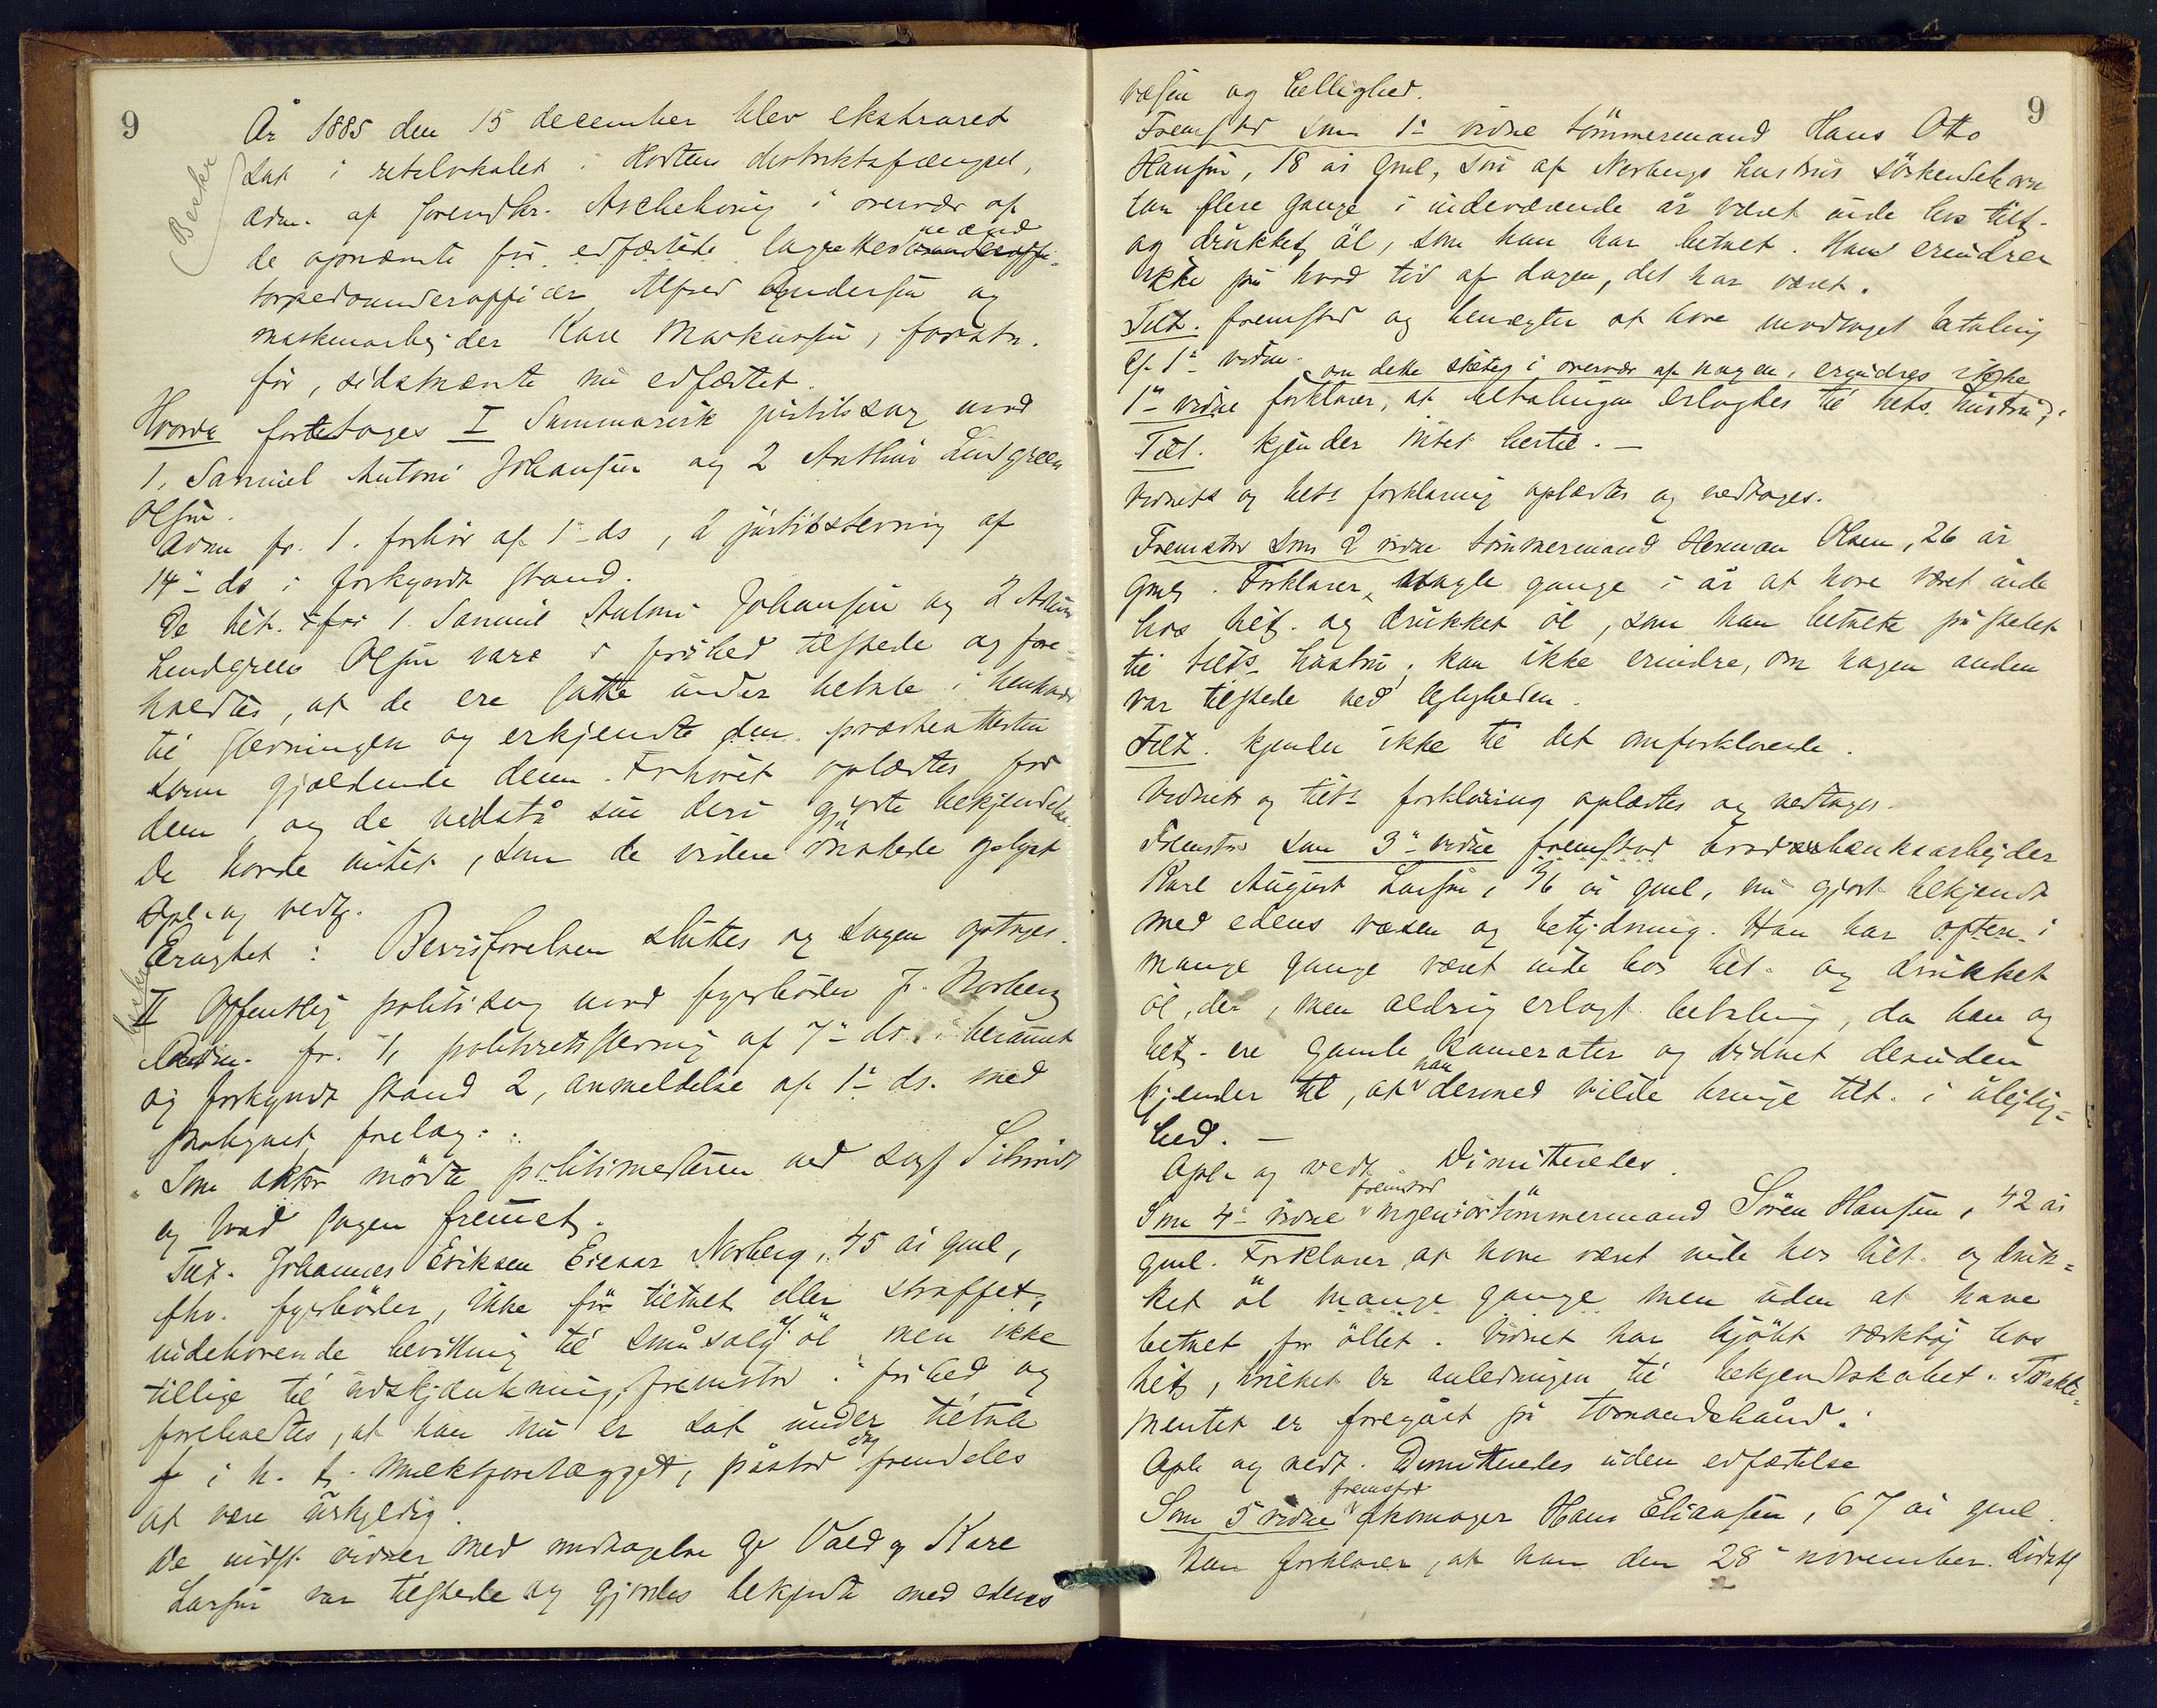 9
År 1885 den 15 december blev ekstraret
sat i retslokalet i Hortens distriktsfængsel,
adm. af forendhv. Aschehoug i overvær af
de opnævnte før edfæstede lagrettesmænd
torpedounderofficer Alfred Andersen og
maskinarbejder Karl Markussen,
før, sidstnævnte nu edfæstet.
Hvorda foretoges I Summarisk justitssag mod
1, Samuel Antoni Johansen og 2 Arthur Lindgreen
Olsen.
Adm fr. 1. forhør af 1- ds, 2 justitsstevning af
14- ds i forkyndt stand.
De tilt. 1 Samuel Antoni Johansen og 2 Arthur
Lindgreen Olsen vare i frihed tilstede og fore-
holdtes, at de ere satte under tiltale i henhold
til stevningen og erkjendte den presteattesten
som gjældende dem. Forhøret oplæstes for
dem og de vedstå sin deri gjorte bekjendelse.
De havde intet, som de videre ønskede oplyst
Opl. og vedt.
Eragtet: Bevisførelsen sluttes og sagen optages.
II Offentlig politisag mod fyrbøder J. Norberg
Adm. fr. 1, politiretsstevning af 7- ds. i berammet
og forkyndt stand 2, anmeldelse af 1- ds. med
påtegnet forelæg.
Som aktor mødte politimesteren ved
og bad sagen fremmet.
Tilt. Johannes Eriksen Norberg, 45 år gml,
fhv. fyrbøder, ikke før tiltalt eller straffet,
indehavende bevilling til småsalg af öl men ikke
tillige til udskjænkning, fremstod i frihed og
foreholdtes, at han nu er sat under tiltale
i h. t. mulktforelægget, påstod dog fremdeles
at være uskyldig.
De indst. vidner med undtagelse af Vold og Karl
Larsen var tilstede og gjordes bekjendt med edens
9
væsen og hellighed.
Fremstod som 1- vidne tømmermand Hans Otto
Hansen, 18 år gml, søn af Norbergs hustrus söskendebarn
han flere gange i indeværende år været inde hos tilt.
og drukket öl, som han har betalt. Han erindrer
ikke på hvad tid af dagen, det har været.
Tilt. fremstod og benægter at have modtaget betaling
af 1- vidne.
om dette skete i overvær af nogen, erindres ikke
1- vidne forklarer, at betalingen erlagdes til tilts. hustru,
Tilt. kjender intet hertil. -
Vidnets og tilts forklaring oplæstes og vedtoges.
Fremstod som 2 vidne tømmermand Herman Olsen, 26 år
gml. Forklarer nogle gange i år at have været inde
hos tilt. og drukket öl, som han betalte på stedet
til tilts hustru; kan ikke erindre, om nogen anden
var tilstede ved lejligheden.
Tilt. kjender ikke til det omforklarede.
Vidnets og tilts forklaring oplæstes og vedtoges.
Fremstod som 3- vidne fremstod
Karl August Larsen, 36 år gml, nu gjort bekjendt
med edens væsen og betydning. Han har
mange gange været inde hos tilt. og drukket
öl, der, men aldrig erlagt betaling, da han og
tilt. ere gamle kamerater og vidnet desuden
kjender til, at han dermed vilde bringe tilt. i ulejlig-
hed. -
Opl. og vedt. Dimitteredes.
Som 4- vidne fremstod ingeniørtømmermand Sören Hansen, 42 år
gml. Forklarer at have været inde hos tilt. og druk-
ket öl mange gange men uden at have
betalt for öllet. Vidnet har kjøbt værktøj hos
tilt, hvilket er anledningen til bekjendtskabet. Trakte-
mentet er foregået på tomandshånd.
Opl. og vedt. Dimitteredes uden edfæstelse
Som 5 vidne fremstod skomager Hans Eliassen, 67 år gml.
Han forklarer, at han den 28- november sidstl